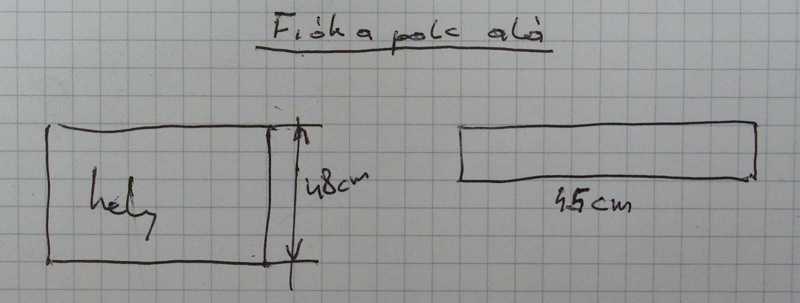 Fiók a polc alá
hely
48cm
45cm